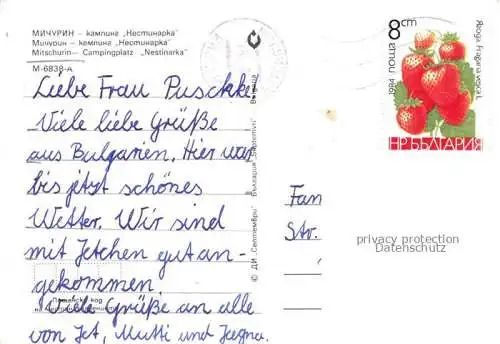 МИЧУРИН – кампинг „Нестинарка"
Мичурин – кемпинг „Нестинарка"
Mitschurin – Campingplatz „Nestinarka"
М-6838-А
Liebe Frau Puschke
Viele liebe Grüße
aus Bulgarien. Hier war
bis jetzt schönes
Wetter. Wir sind
mit Jetchen gut an-
gekommen.
Viele Grüße an alle
von Jet, Mutti und
© ДИ „Септември" България
8 cm
1984 поща
Ягода Fragaria vesca L.
НР БЪЛГАРИЯ
Fam
Str.
privacy protection
Datenschutz